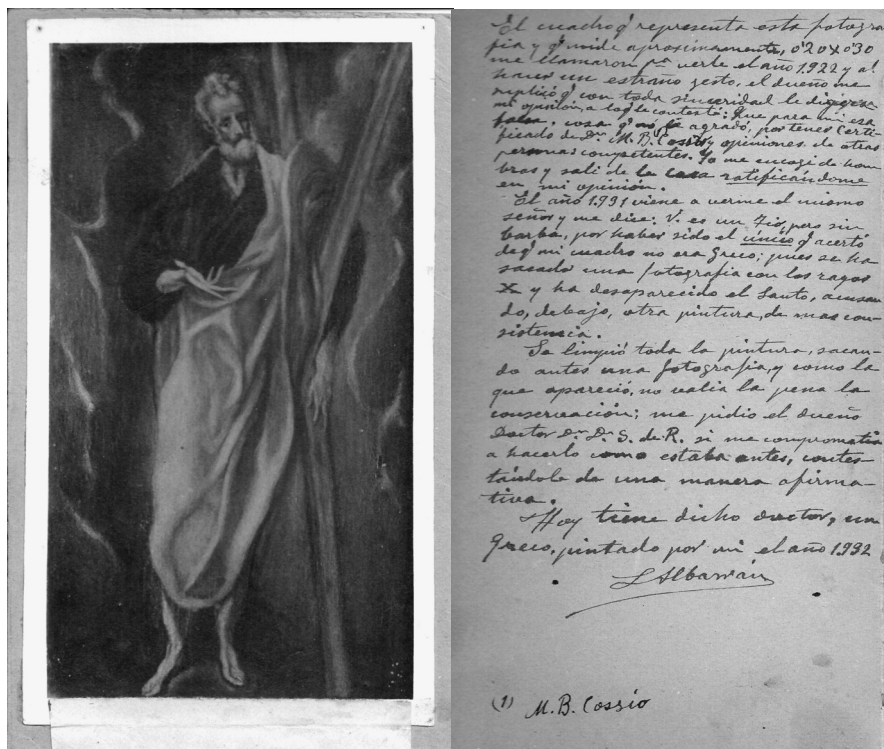 El cuadro q̃ representa esta fotogra
fia y q̃ mide aproximamente, 0'20 x 0'30
me llamaron pª verle el año 1922 y al
hacer un estraño gesto, el dueño me
suplicó q̃ con toda sinceridad le dijese
mi opinión, a lo q̃ le contesté: Que para mi era
falso, cosa q̃ no le agradó, por tener certi-
ficado de Dn. M. B. Cossio y opiniones de otras
personas competentes. Yo me encogi de hom
bros y sali de la casa ratificándome
en mi opinión.
El año 1931 viene a verme el mismo
señor y me dice: V. es un Tio, pero sin
barba, por haber sido el único q̃ acertó
de q̃ mi cuadro no era Greco; pues se ha
sacado una fotografia con los rayos
X y ha desaparecido el Santo, acusan
do, debajo, otra pintura, de mas con-
sistencia.
Se limpió toda la pintura, sacan-
do antes una fotografia, y como la
que apareció, no valia la pena la
conservación; me pidio el dueño
Doctor Dn. D. S. de R. si me comprometia
a hacerlo como estaba antes, contes-
tándole de una manera afirma-
tiva.
Hoy tiene dicho doctor, un
Greco, pintado por mi el año 1932
L Albarrán
(1) M. B. Cossio